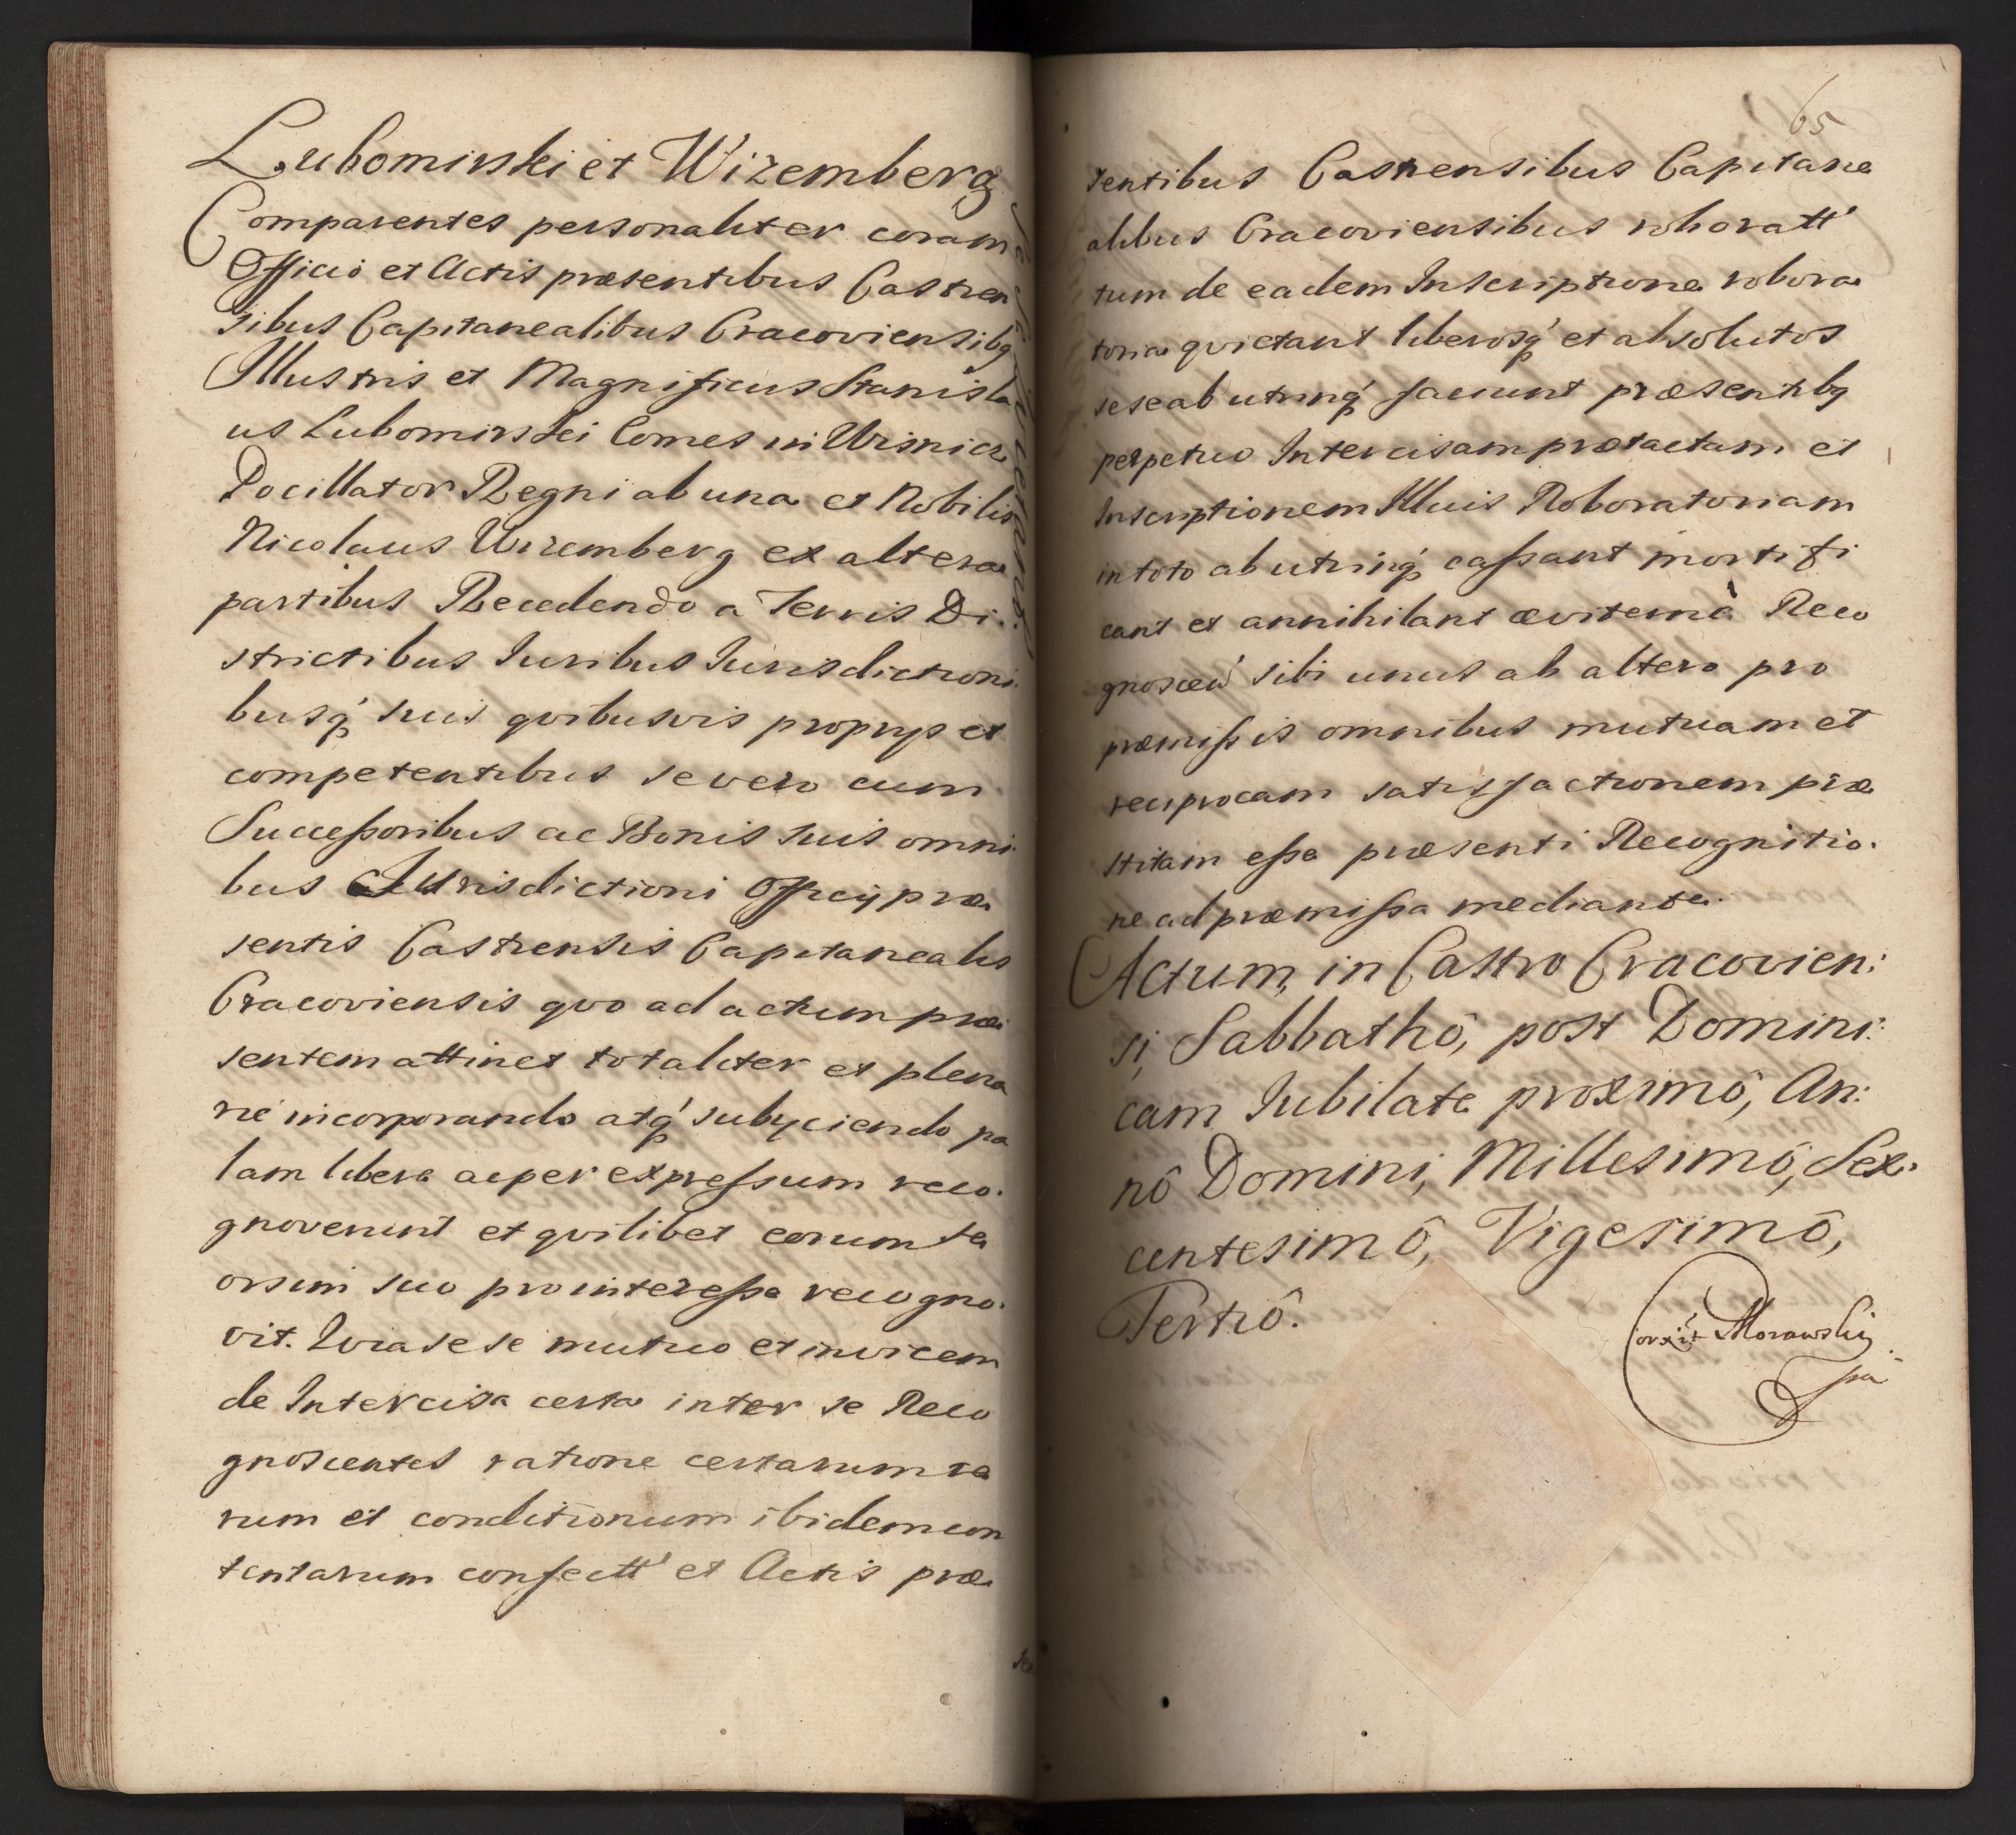 Lubomirski et Wizemberg
Comparentes personaliter coram
Officio et Actis præsentibus Castren
sibus Capitanealibus Cracoviensibq
Illustris et Magnificus Stanisla
us Lubomirski Comes in Wisnicz
Pocillator Regni ab una et Nobilis
Nicolaus Wizemberg ex altera
partibus Recedendo a Terris Di:
strictibus Iuribus Iurisdictioni
busq́ suis qvibusvis propryis et
competentibus se vero cum
Successoribus ac Bonis suis omni
bus Iurisdictioni Officij præ
sentis Castrensis Capitanealis
Cracoviensis qvo ad actum præ
sentem attinet totaliter et plena
rie incorporando atq́ subyciendo pa
lam libere ac per expressum reco.
gnoverunt et qvilibet eorum se
orsim suo pro interesse recogno.
vit. Qvia sese mutuo et invicem
de Intercisa certa inter se Reco
gnoscentes ratione certarum re
rum et conditionum ibidem con
tentarum confectt' et Actis præ
65
sentibus Castrensibus Capitane
alibus Cracoviensibus roboratt'
tum de eadem Inscriptione robora
toria qvietant liberosq́ et absolutos
sese ab utrinq́ faciunt præsentibq
perpetuo Intercisam prætactam et
Inscriptionem Illius Roboratoriam
in toto ab utrinq́ cassant mortifi
cant et annihilant æviternè Reco
gnoscen' sibi unus ab altero pro
præmissis omnibus mutuam et
reciprocam satisfactionem præ
stitam esse præsenti Recognitio.
ne ad præmissa mediante.
Actum, in Castro Cracovien:
si, Sabbathô, post Domini:
cam Iubilate proximô, An:
nô Domini, Millesimô, Sex.
centesimô, Vigesimô,
Tertiô.
Morawski